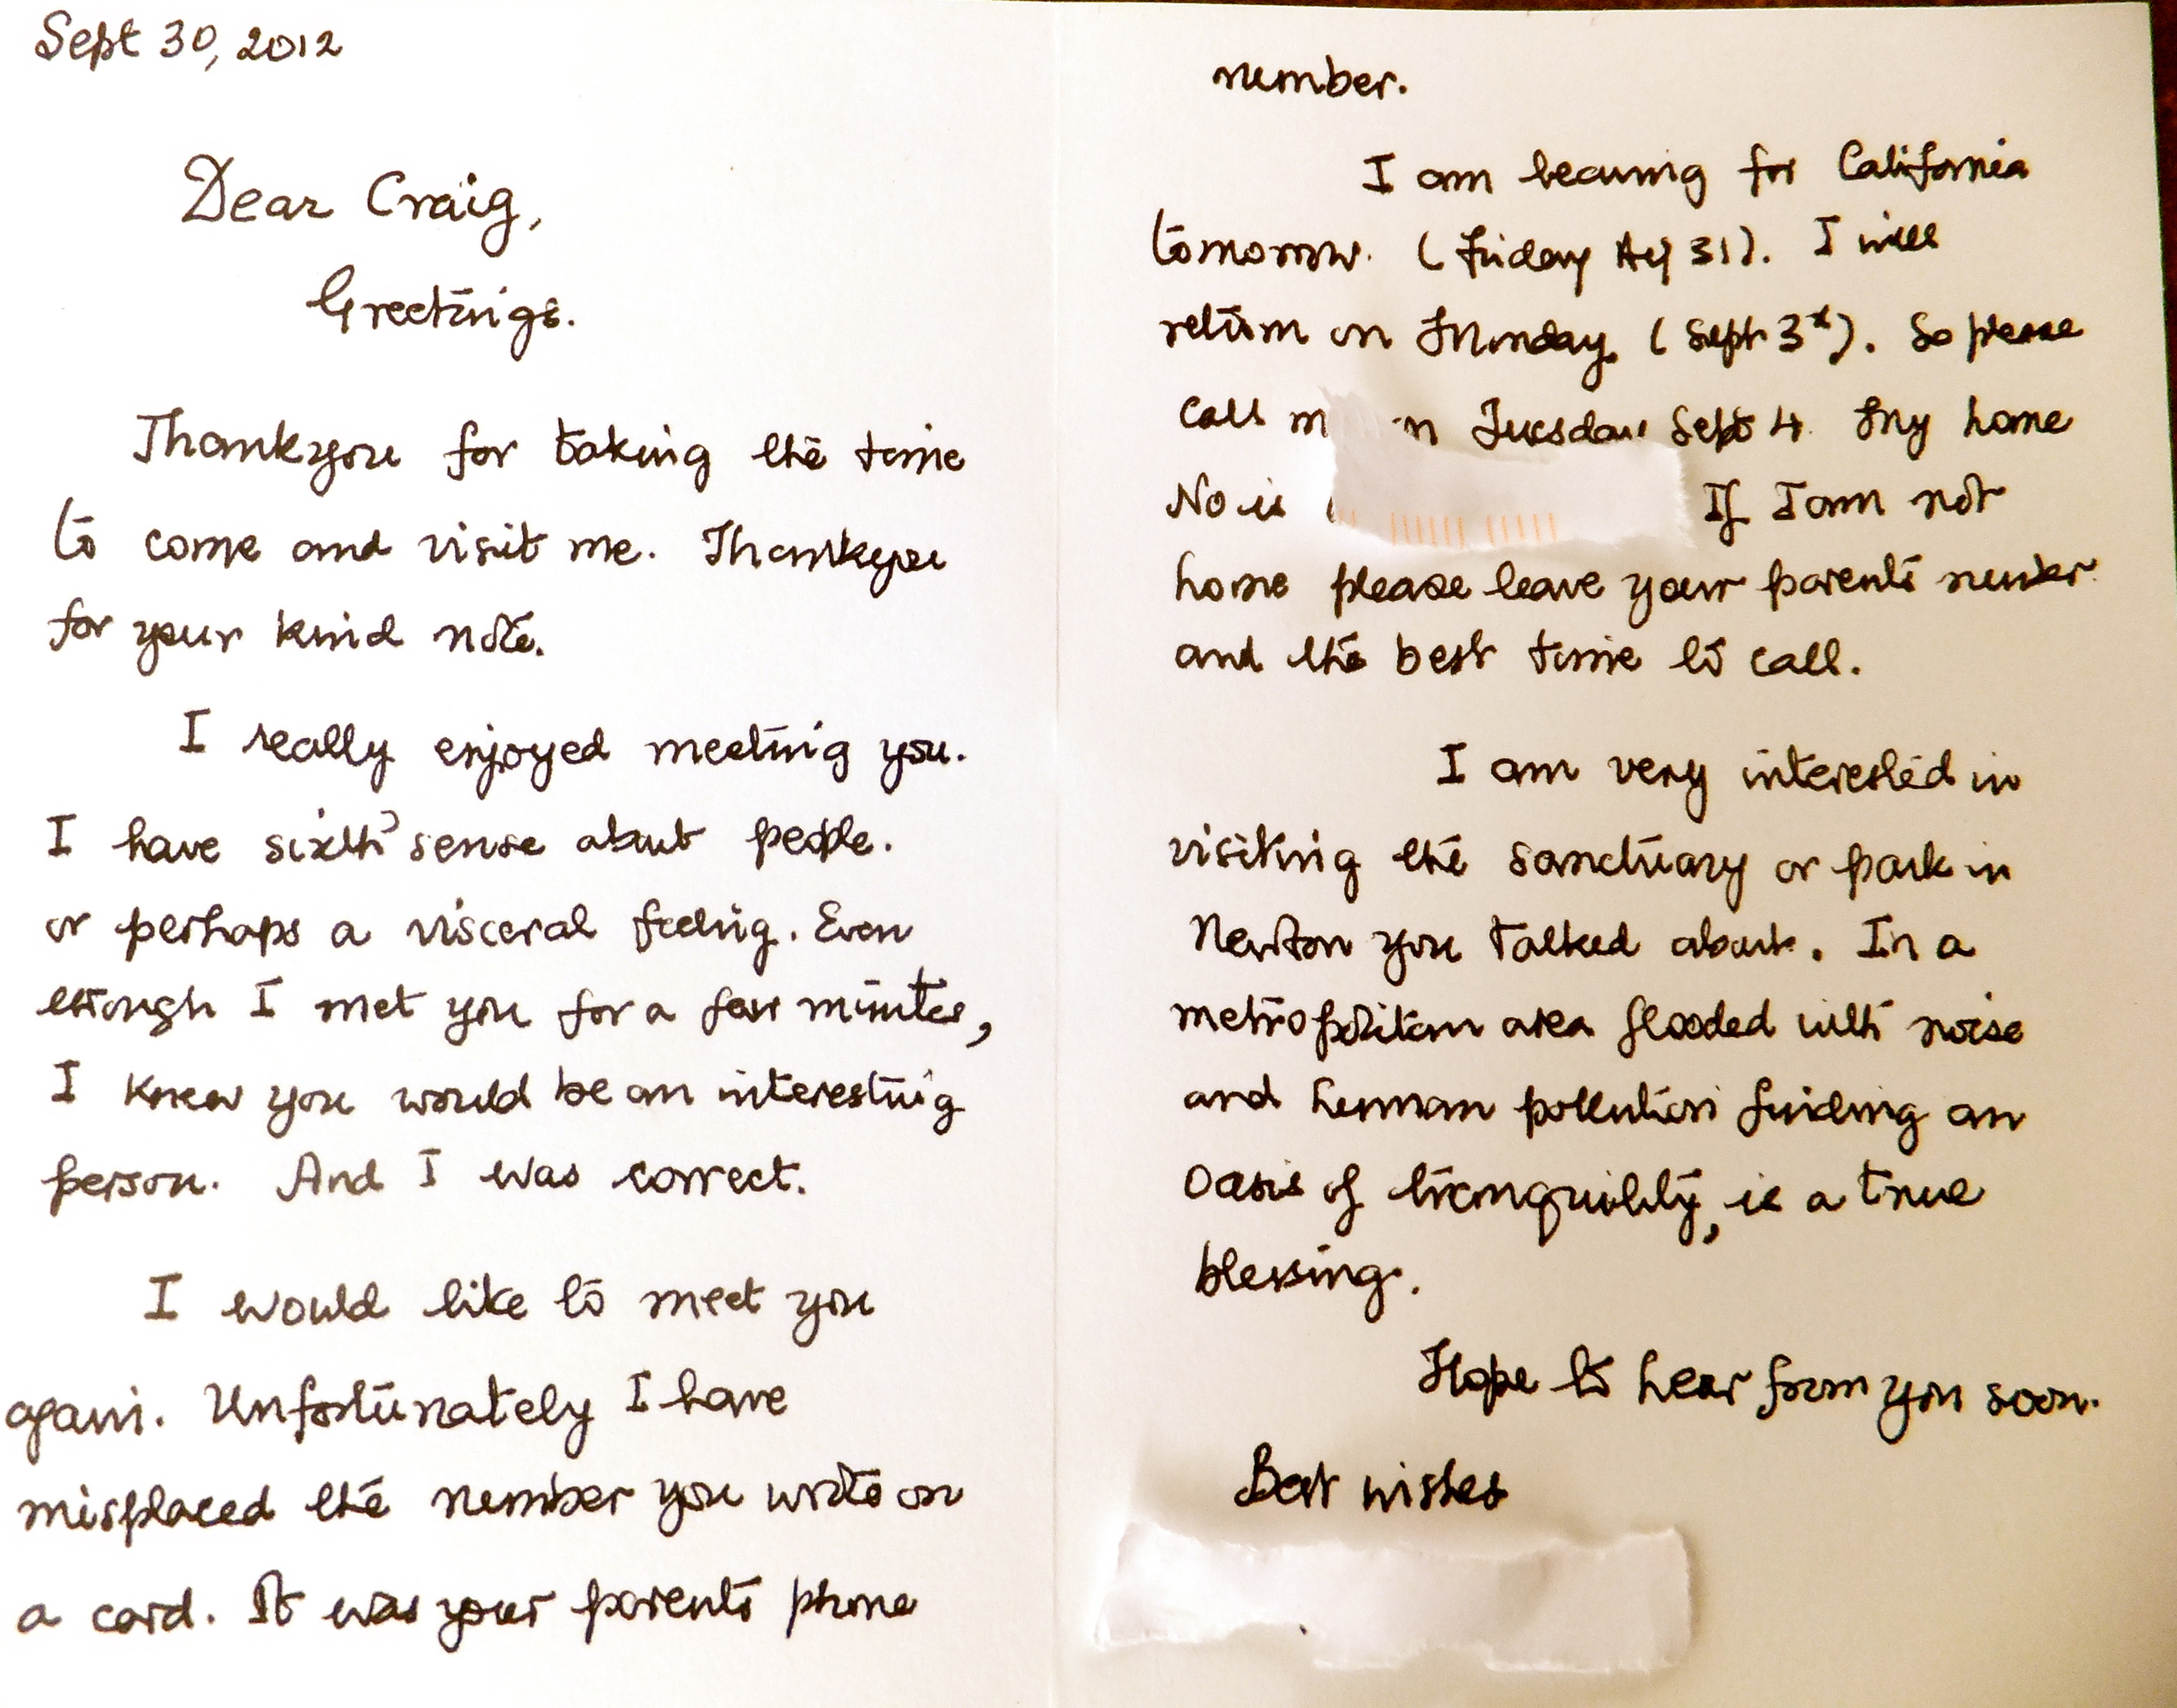 Sept 30, 2012
Dear Craig,
Greetings.
Thankyou for taking the time
to come and visit me. Thankyou
for your kind note.
I really enjoyed meeting you.
I have sixth sense about people.
or perhaps a visceral feeling. Even
though I met you for a few minutes,
I knew you would be an interesting
person. And I was correct.
I would like to meet you
again. Unfortunately I have
misplaced the number you wrote on
a card. It was your parents phone
number.
I am leaving for California
tomorrow. (Friday 31). I will
return on Monday (Sept 3). So please
call Tuesday Sept 4. My home
No is If I am not
home please leave your parents number
and the best time to call.
I am very interested in
visiting the sanctuary or park in
Newton you talked about. In a
metropolitan area flooded with noise
and human pollution finding an
oasis of tranquility, is a true
blessing.
Hope to hear from you soon.
Best wishes